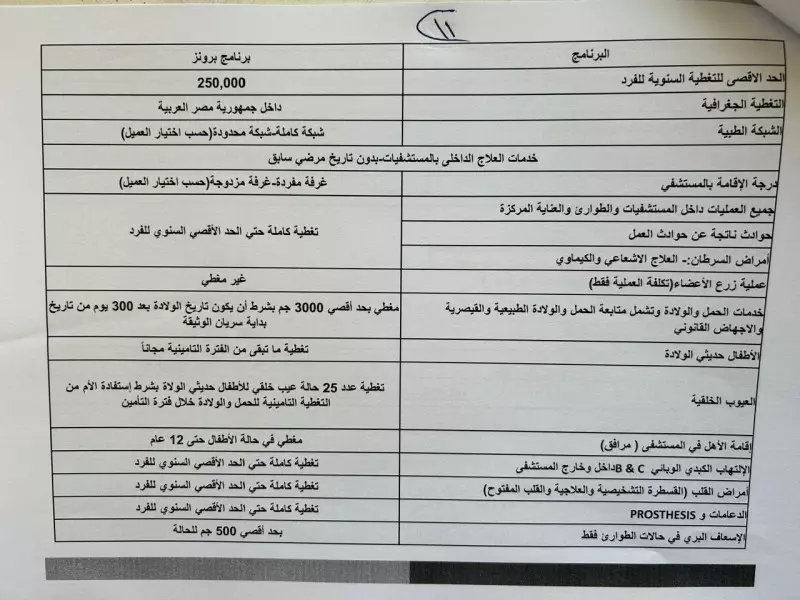 ١١
البرنامج
برنامج برونز
الحد الاقصى للتغطية السنوية للفرد
250,000
التغطية الجغرافية
داخل جمهورية مصر العربية
الشبكة الطبية
شبكة كاملة-شبكة محدودة(حسب اختيار العميل)
خدمات العلاج الداخلى بالمستشفيات-بدون تاريخ مرضي سابق
درجة الإقامة بالمستشفي
غرفة مفردة-غرفة مزدوجة(حسب اختيار العميل)
جميع العمليات داخل المستشفيات والطوارئ والعناية المركزة
حوادث ناتجة عن حوادث العمل
أمراض السرطان:- العلاج الاشعاعي والكيماوي
تغطية كاملة حتي الحد الأقصي السنوي للفرد
عملية زرع الأعضاء(تكلفة العملية فقط)
غير مغطي
خدمات الحمل والولادة وتشمل متابعة الحمل والولادة الطبيعية والقيصرية
والاجهاض القانوني
مغطي بحد أقصي 3000 جم بشرط أن يكون تاريخ الولادة بعد 300 يوم من تاريخ
بداية سريان الوثيقة
الأطفال حديثي الولادة
تغطية ما تبقى من الفترة التامينية مجاناً
العيوب الخلقية
تغطية عدد 25 حالة عيب خلقي للأطفال حديثي الولاة بشرط إستفادة الأم من
التغطية التامينية للحمل والولادة خلال فترة التأمين
إقامة الأهل في المستشفى ( مرافق)
مغطي في حالة الأطفال حتى 12 عام
الإلتهاب الكبدي الوبائي B & C داخل وخارج المستشفى
تغطية كاملة حتي الحد الأقصي السنوي للفرد
أمراض القلب (القسطرة التشخيصية والعلاجية والقلب المفتوح)
تغطية كاملة حتي الحد الأقصي السنوي للفرد
الدعامات و PROSTHESIS
تغطية كاملة حتي الحد الأقصي السنوي للفرد
الإسعاف البري في حالات الطوارئ فقط
بحد أقصي 500 جم للحالة